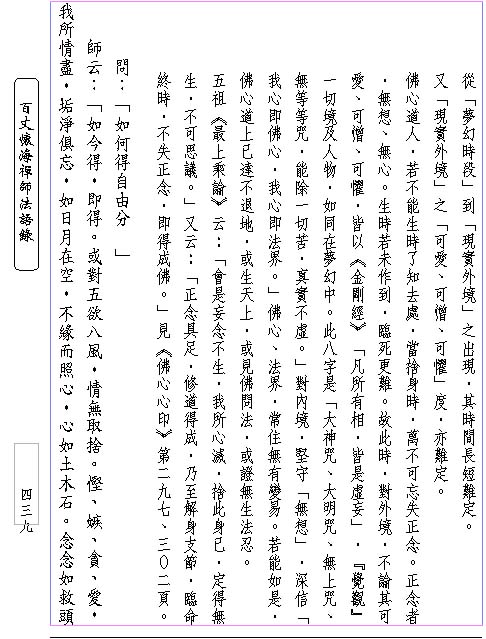 從「夢幻時段」到「現實外境」之出現，其時間長短難定。
又「現實外境」之「可愛、可憎、可懼」度，亦難定。
佛心道人，若不能生時了知去處，當捨身時，萬不可忘失正念。正念者
，無想、無心。生時若未作到，臨死更難。故此時，對外境，不論其可
愛、可憎、可懼，皆以《金剛經》「凡所有相，皆是虛妄」，『覺觀』
一切境及人物，如同在夢幻中。此八字是「大神咒、大明咒、無上咒、
無等等咒，能除一切苦，真實不虛。」對內境，堅守「無想」，深信「
我心即佛心，我心即法界。」佛心、法界，常住無有變易。若能如是，
佛心道上已達不退地，或生天上，或見佛問法，或證無生法忍。
五祖《最上乘論》云：「會是妄念不生，我所心滅，捨此身已，定得無
生，不可思議。」又云：「正念具足，修道得成，乃至解身支節，臨命
終時，不失正念，即得成佛。」見《佛心心印》第二九七、三０二頁。
問：「如何得自由分　」
師云：「如今得，即得。或對五欲八風，情無取捨。慳、嫉、貪、愛，
我所情盡，垢淨俱忘，如日月在空，不緣而照心，心如土木石。念念如救頭
百丈懷海禪師法語錄
四三九